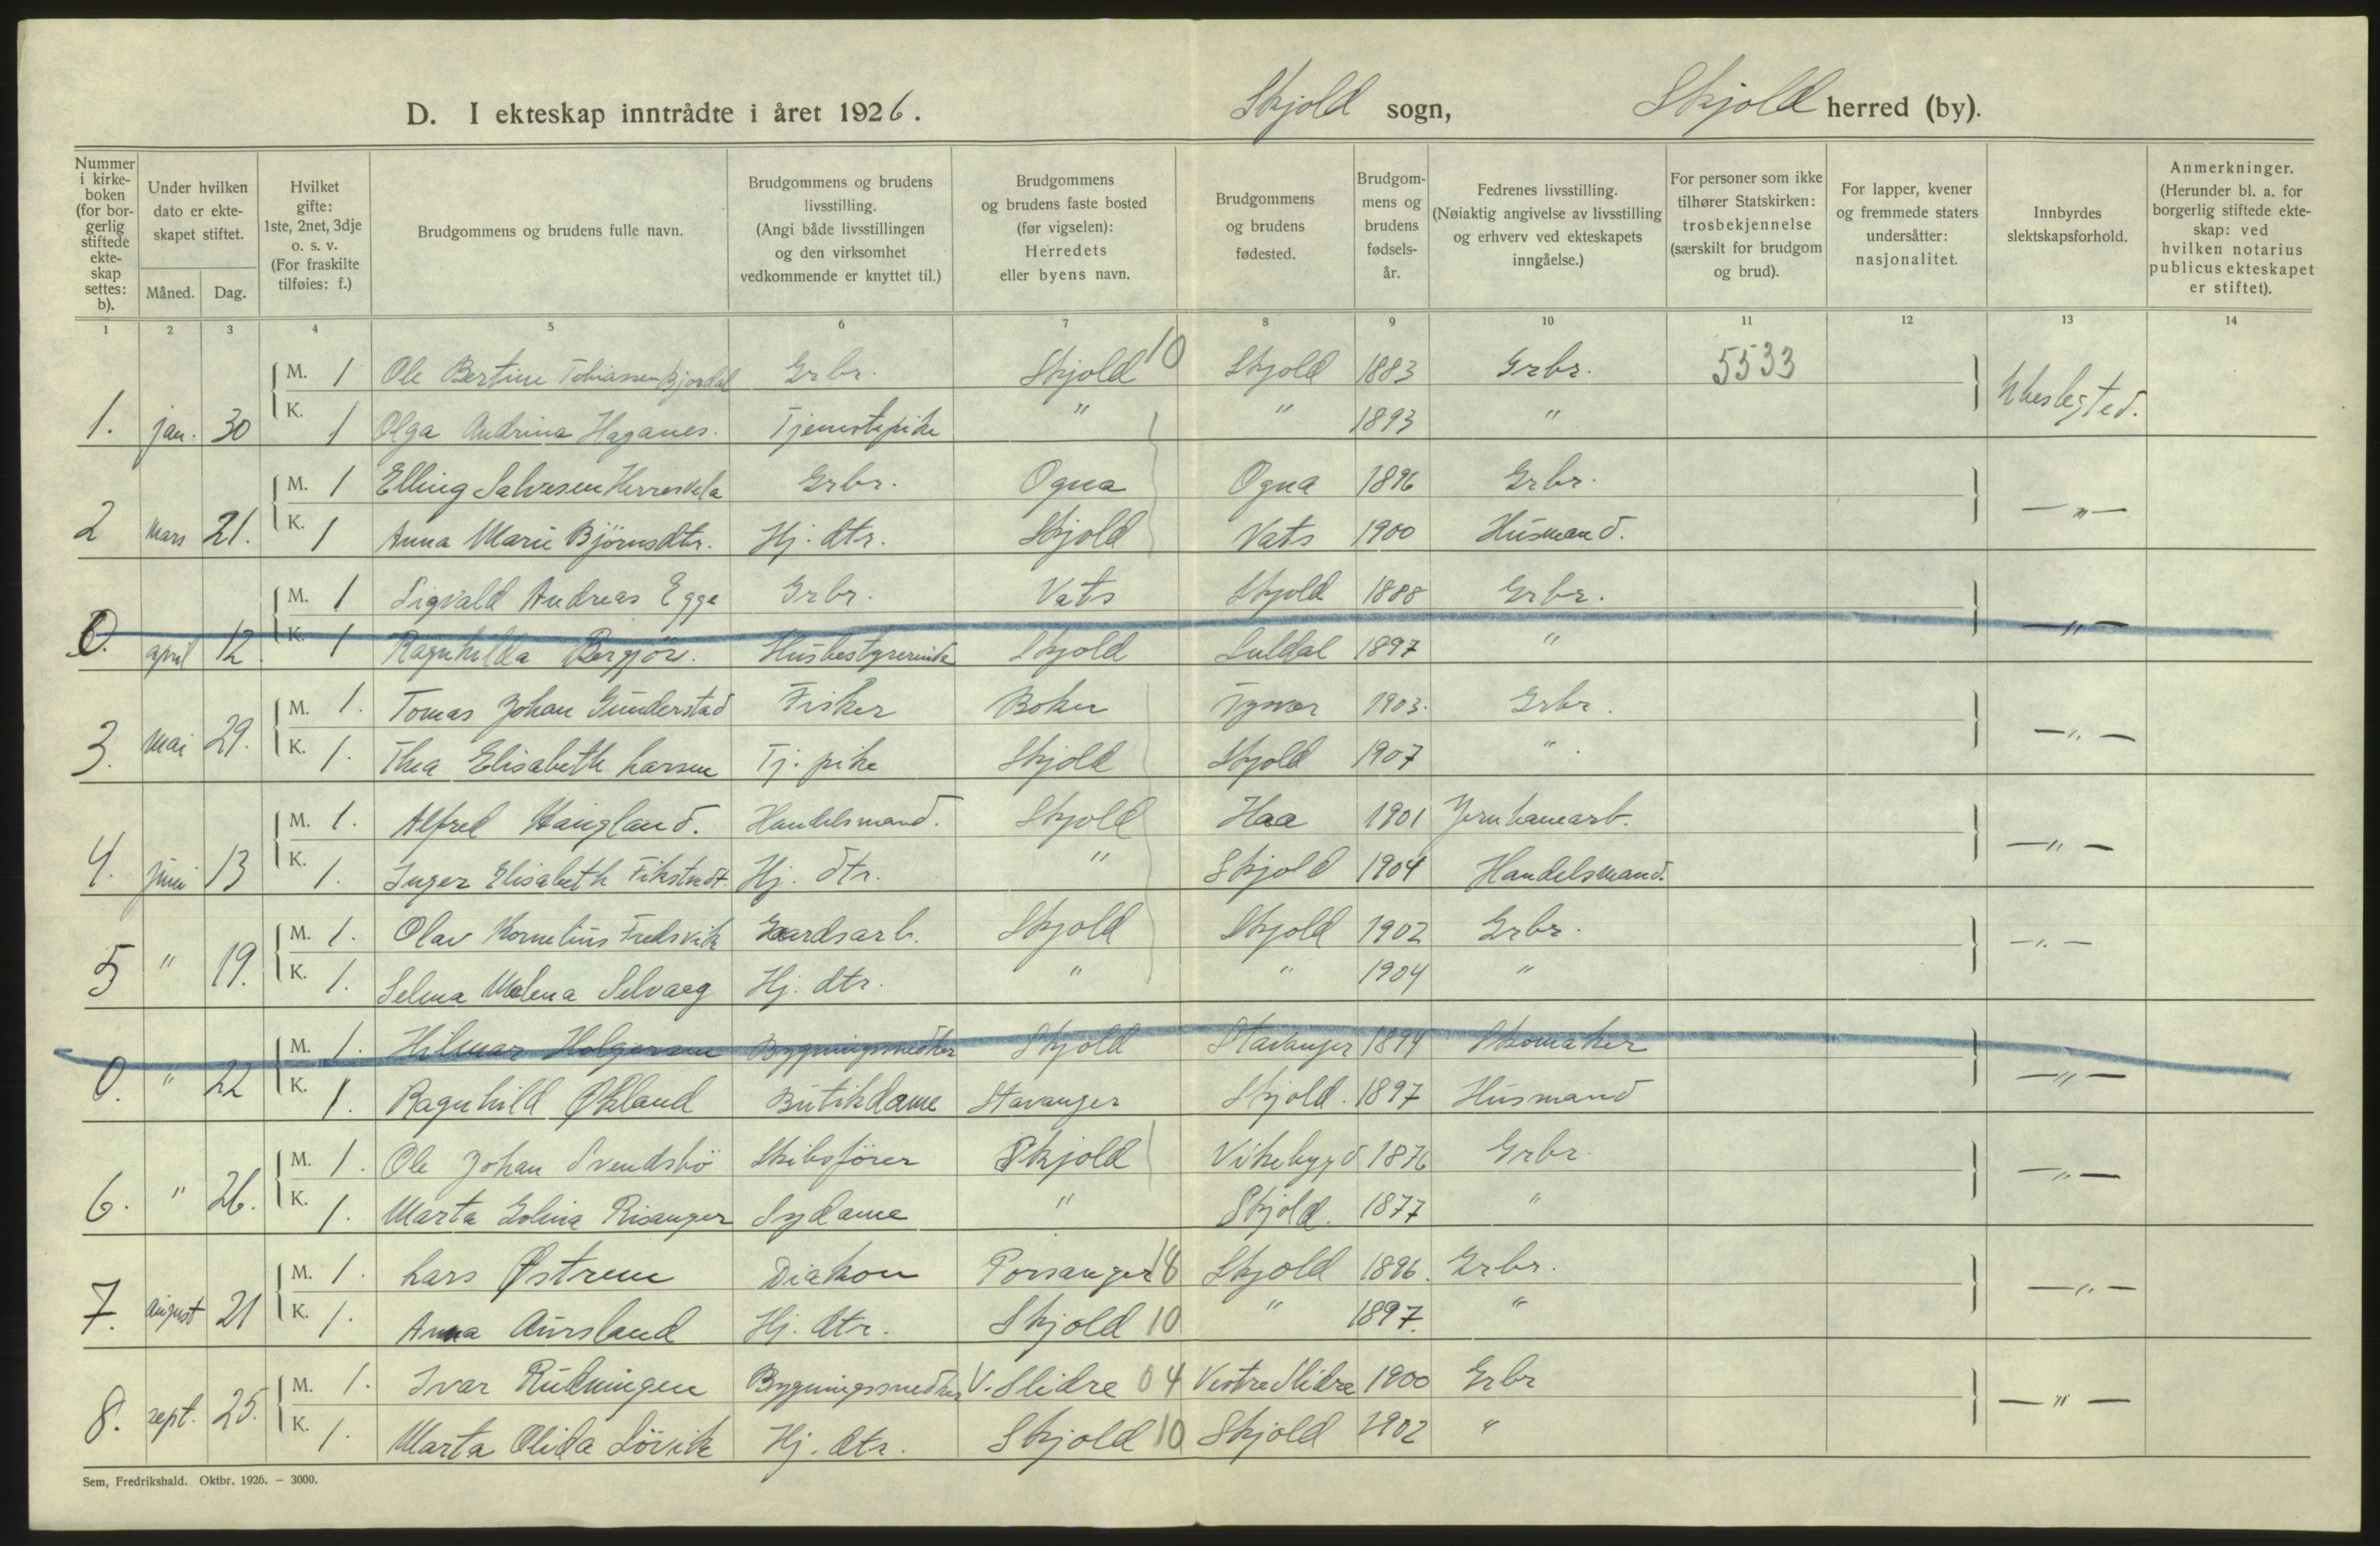 D. I ekteskap inntrådte i året 1926. Skjold sogn, Skjold herred (by).
Nummer i kirkeboken (for borgerlig stiftede ekteskap settes: b).
Under hvilken dato er ekteskapet stiftet.
Måned. Dag.
Hvilket gifte: 1ste, 2net, 3dje o. s. v. (For fraskilte tilføies: f.)
Brudgommens og brudens fulle navn.
Brudgommens og brudens livsstilling. (Angi både livsstillingen og den virksomhet vedkommende er knyttet til.)
Brudgommens og brudens faste bosted (før vigselen): Herredets eller byens navn.
Brudgommens og brudens fødested.
Brudgommens og brudens fødselsår.
Fedrenes livsstilling. (Nøiaktig angivelse av livsstilling og erhverv ved ekteskapets inngåelse.)
For personer som ikke tilhører Statskirken: trosbekjennelse (særskilt for brudgom og brud).
For lapper, kvener og fremmede staters undersåtter: nasjonalitet.
Innbyrdes slektskapsforhold.
Anmerkninger. (Herunder bl. a. for borgerlig stiftede ekteskap: ved hvilken notarius publicus ekteskapet er stiftet).
1 2 3 4 5 6 7 8 9 10 11 12 13 14
M. 1 Ole Bertin Tobiassen Bjordal Grbr. Skjold 10 Skjold 1883 Grbr. 5533
1. jan. 30 K. 1 Olga Andrina Haganes. Tjenestepike " " 1893 " Ikkeslegted.
M. 1 Elling Salvesen Ogna Ogna 1896 Grbr.
2 mars 21. K. 1 Anna Marie Björnsdtr. Hj. dtr. Skjold Vats 1900 Husmand. — " —
M. 1 Sigvald Andreas Egge Grbr. Vats Skjold 1888 Grbr.
0. april 12. K. 1 Ragnhilda Husbestyrerinde Skjold Suldal 1897 " — " —
M. 1. Tomas Johan Gunderstad Fisker Boken Tysvær 1903. Grbr.
3. mai 29. K. 1. Thea Elisabeth Larsen Tj. pike Skjold Skjold 1907 " — " —
M. 1. Alfred Haugland. Handelsmand. Skjold Haa 1901 Jernbanearb.
4. juni 13 K. 1. Inger Elisabeth Hj. dtr. " Skjold 1904 Handelsmand. — " —
M. 1. Olav Kornelius Fredsvik Gaardsarb. Skjold Skjold 1902 Grbr.
5 " 19. K. 1. Selma Malena Selvaag Hj. dtr. " " 1904 " — " —
M. 1. Hilmar Holgersen Bygningssnedker Skjold Stavanger 1894 Skomaker
0. " 22 K. 1. Ragnhild Økland Butikdame Stavanger Skjold. 1897 Husmand — " —
M. 1. Ole Johan Svendsbö Skibsförer Skjold Vikebygd 1876 Grbr.
6. " 26. K. 1. Marta Golina Risanger Sydame " Skjold. 1877 " — " —
M. 1. Lars Østrem Diakon Porsanger 18 Skjold 1896. Grbr.
7. august 21 K. 1. Anna Aursland Hj. dtr. Skjold 10 " 1897. " — " —
M. 1. Ivar Rudningen Bygningssnedker V. Slidre 04 Vestre Slidre 1900 Grbr
8. sept. 25. K. 1. Marta Olida Lövik Hj. dtr. Skjold 10 Skjold 1902 " — " —
Sem, Fredrikshald. Oktbr. 1926. – 3000.